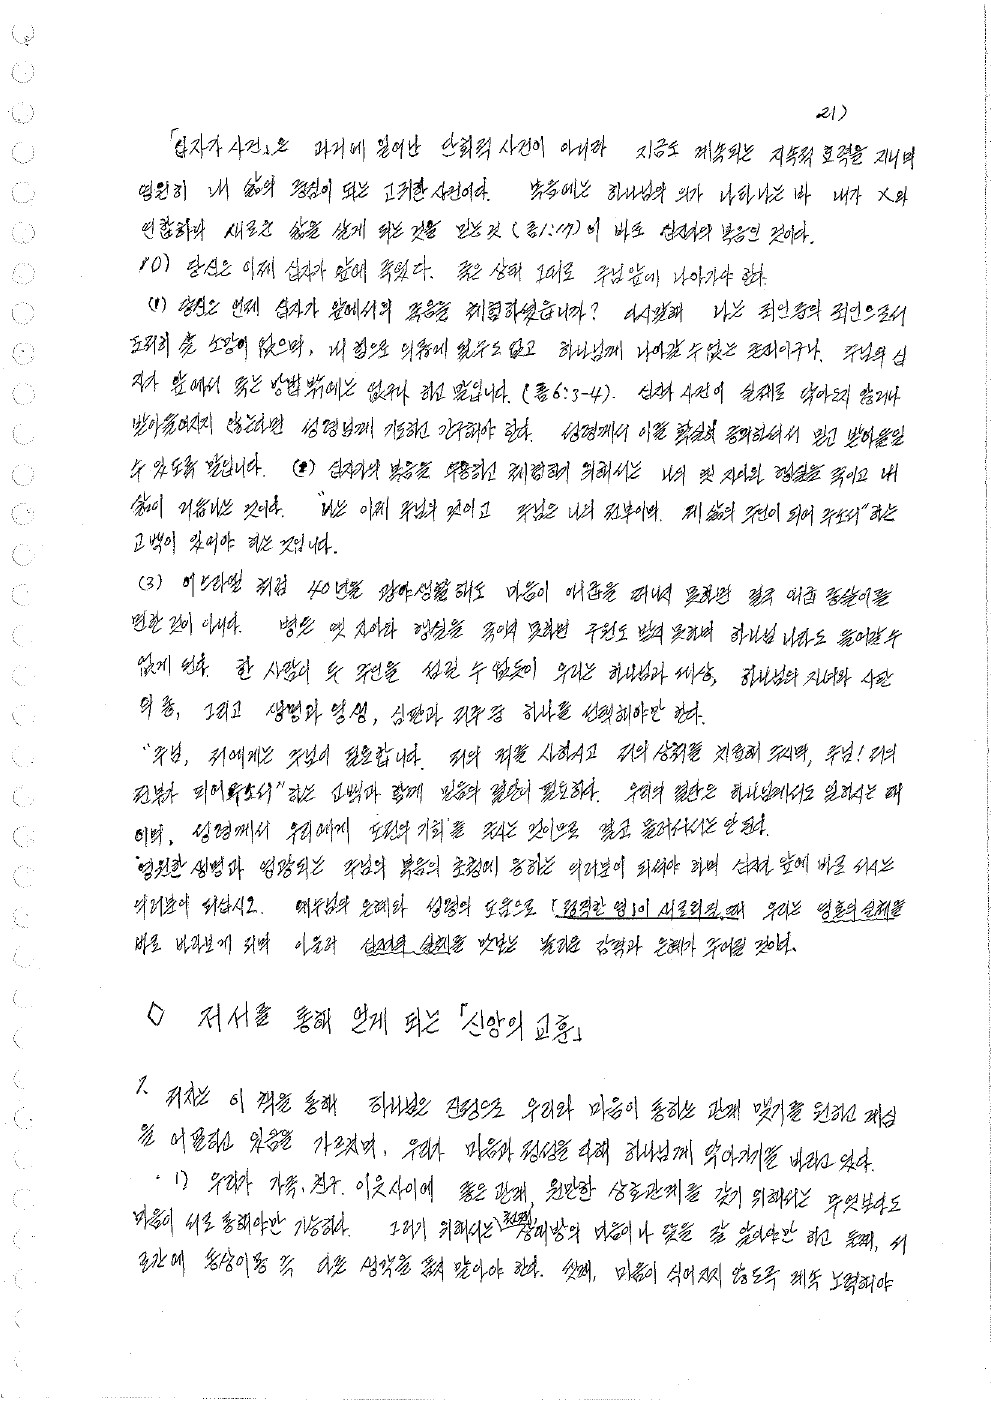 21)
「십자가 사건」은 과거에 일어난 단회적 사건이 아니라 지금도 계속되는 지속적 효력을 지니며
영원히 내 삶의 중심이 되는 고귀한 사건이다. 복음에는 하나님의 의가 나타나는 바 내가 X와
연합하여 새로운 삶을 살게 되는 것을 믿는 것 (롬1:17)이 바로 십자가의 복음인 것이다.
10) 당신은 이제 십자가 앞에 죽었다. 죽은 상태 그대로 주님 앞에 나아가야 한다.
(1) 당신은 언제 십자가 앞에서의 죽음을 체험하셨습니까? 다시말해 나는 죄인중의 죄인으로서
도저히 소망이 없으며, 내 힘으로 의롭게 될수도 없고 하나님께 나아갈 수 없는 존재이구나. 주님의 십
자가 앞에서 죽는 방법 밖에는 없구나 하고 말입니다. (롬6:3-4). 십자가 사건이 실제로 닥아오지 않거나
받아들여지지 않는다면 성령님께 기도하고 간구해야 한다. 성령께서 이를 확실히 증거하셔서 믿고 받아들일
수 있도록 말입니다. (2) 십자가의 복음을 적용하고 체험하기 위해서는 나의 옛 자아와 행실을 죽이고 내
삶이 거듭나는 것이다. "나는 이제 주님의 것이고 주님은 나의 전부이며. 제 삶의 주인이 되어 주소서" 하는
고백이 있어야 하는 것입니다.
(3) 이스라엘 처럼 40년을 광야생활해도 마음이 애굽을 떠나지 못하면 결국 애굽 종살이를
면한 것이 아니다. 병든 옛 자아와 행실을 죽이지 못하면 구원도 받지 못하며 하나님 나라도 들어갈 수
없게 된다. 한 사람이 두 주인을 섬길 수 없듯이 우리는 하나님과 세상, 하나님의 자녀와 사탄
의 종, 그리고 생명과 영생, 심판과 저주 중 하나를 선택해야만 한다.
"주님, 저에게는 주님이 필요합니다. 저의 죄를 사하시고 저의 상처를 치료해 주시며, 주님! 저의
전부가 되어 주소서" 하는 고백과 함께 믿음의 결단이 필요하다. 우리의 결단은 하나님께서도 원하시는 때
이며, 성령께서 우리에게 도전의 기회를 주시는 것이므로 결코 물러서서는 안된다.
영원한 생명과 연장되는 주님의 복음의 초청에 응하는 여러분이 되셔야 하며 십자가 앞에 바로 서시는
여러분이 되십시오. 예수님의 은혜와 성령의 도움으로 「정직한 영」이 새로워질 때 우리는 영혼의 실체를
바로 바라보게 되며 아울러 십자가의 실체를 맛보는 놀라운 감격과 은혜가 주어질 것이다.
◇ 저서를 통해 얻게 되는 「신앙의 교훈」
1. 저자는 이 책을 통해 하나님은 진정으로 우리와 마음이 통하는 관계 맺기를 원하고 계심
을 어필하고 있음을 가르치며, 우리가 마음과 정성을 다해 하나님께 닥아가기를 바라고 있다.
1) 우리가 가족, 친구, 이웃사이에 좋은 관계, 원만한 상호관계를 갖기 위해서는 무엇보다도
마음이 서로 통해야만 가능하다. 그러기 위해서는 첫째, 상대방의 마음이나 뜻을 잘 알아야만 하고 둘째, 서
로간에 동상이몽 즉 다른 생각을 품지 말아야 한다. 셋째, 마음이 식어지지 않도록 계속 노력해야